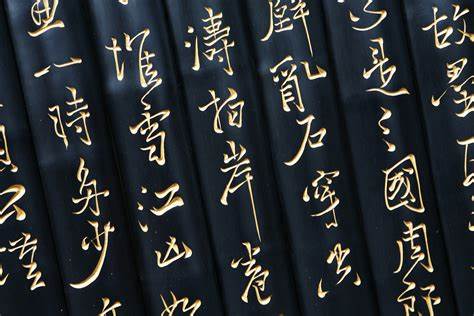 故壘西
道是三國周郎
壁亂石穿空
濤拍岸卷
堆雪江山如
一時多少
公瑾